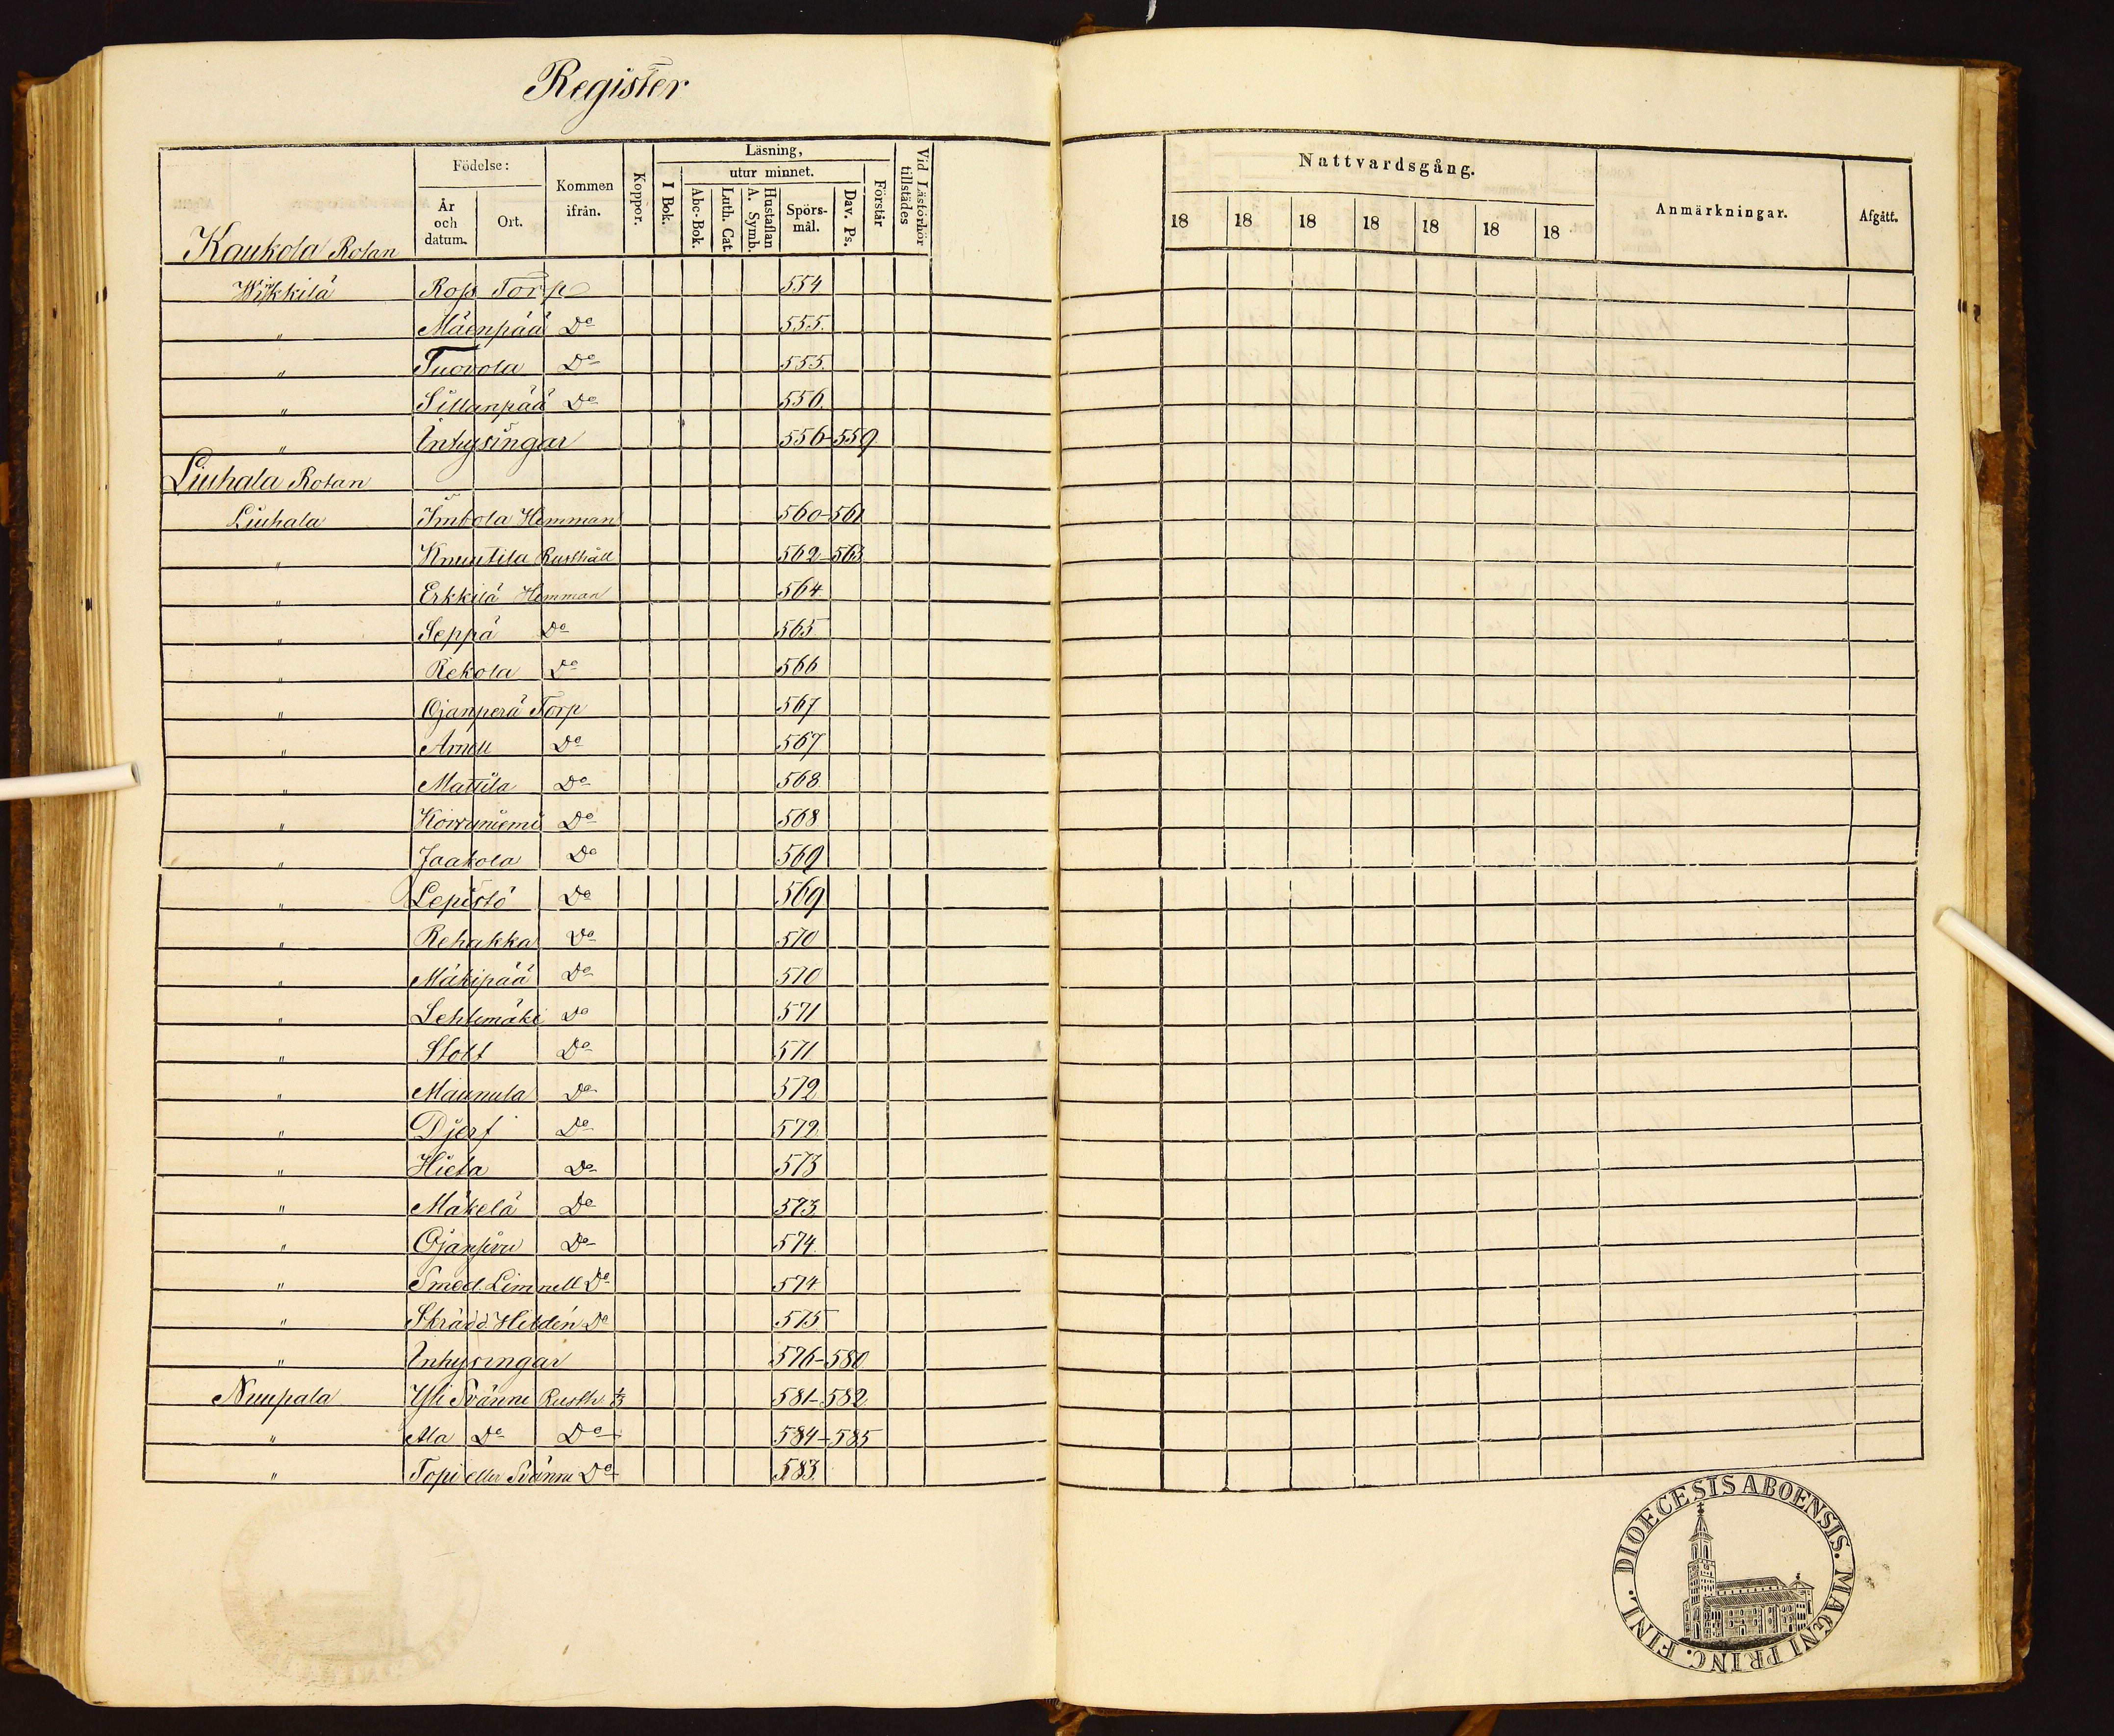 Register
Födelse:
År och datum.
Ort.
Kommen ifrån.
Koppor.
Läsning,
I Bok.
utur minnet.
Abc-Bok.
Luth. Cat.
Hustaflan A. Symb.
Spörs-mål.
Dav. Ps.
Förstår
Vid Läsförhör tillstädes
Nattvardsgång.
18 18 18 18 18 18 18
Anmärkningar.
Afgått.
Kaukola Rotan
Torp 554
" Mäenpää Do 555.
" Tuovola Do 555.
" Sillanpää Do 556.
" Inhysingar 556-559
Liuhala Rotan
Liuhala Imbola Hemman 560-561
" Knuutila Rusthåll 562-563
" Erkkilä Hemman 564
" Seppä Do 565
" Rekola Do 566
" Ojanperä Torp 567
" Arnell Do 567
" Mattila Do 568.
" Korvuniemi Do 568
" Jaakola Do 569
" Lepistö Do 569
" Rehakka Do 570
" Mäkipää Do 570
" Lehtimäki Do 571
" Stolt Do 571
" Maunula Do 572
" Djerf Do 572
" Hieta Do 573
" Mäkelä Do 573
" Ojansivu Do 574
" Smed. Limnell Do 574
" Skrädd. Hildén Do 575
" Inhysingar 576-580
Nuupala Yli Svänni Rusth. 1/3 581-582
" Ala Do Do 584-585
" Topi eller Svänni Do 583.
DIOECESIS ABOENSIS. MAGNI PRINC. FINL.